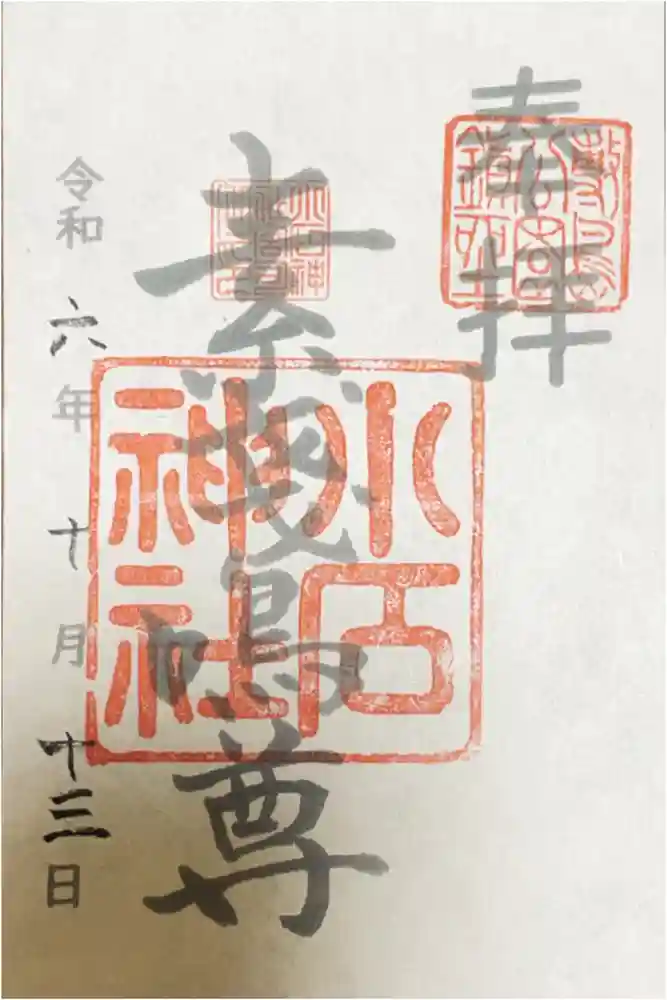 奉拝
素戔嗚尊
水石
神社
令和六年十月十三日